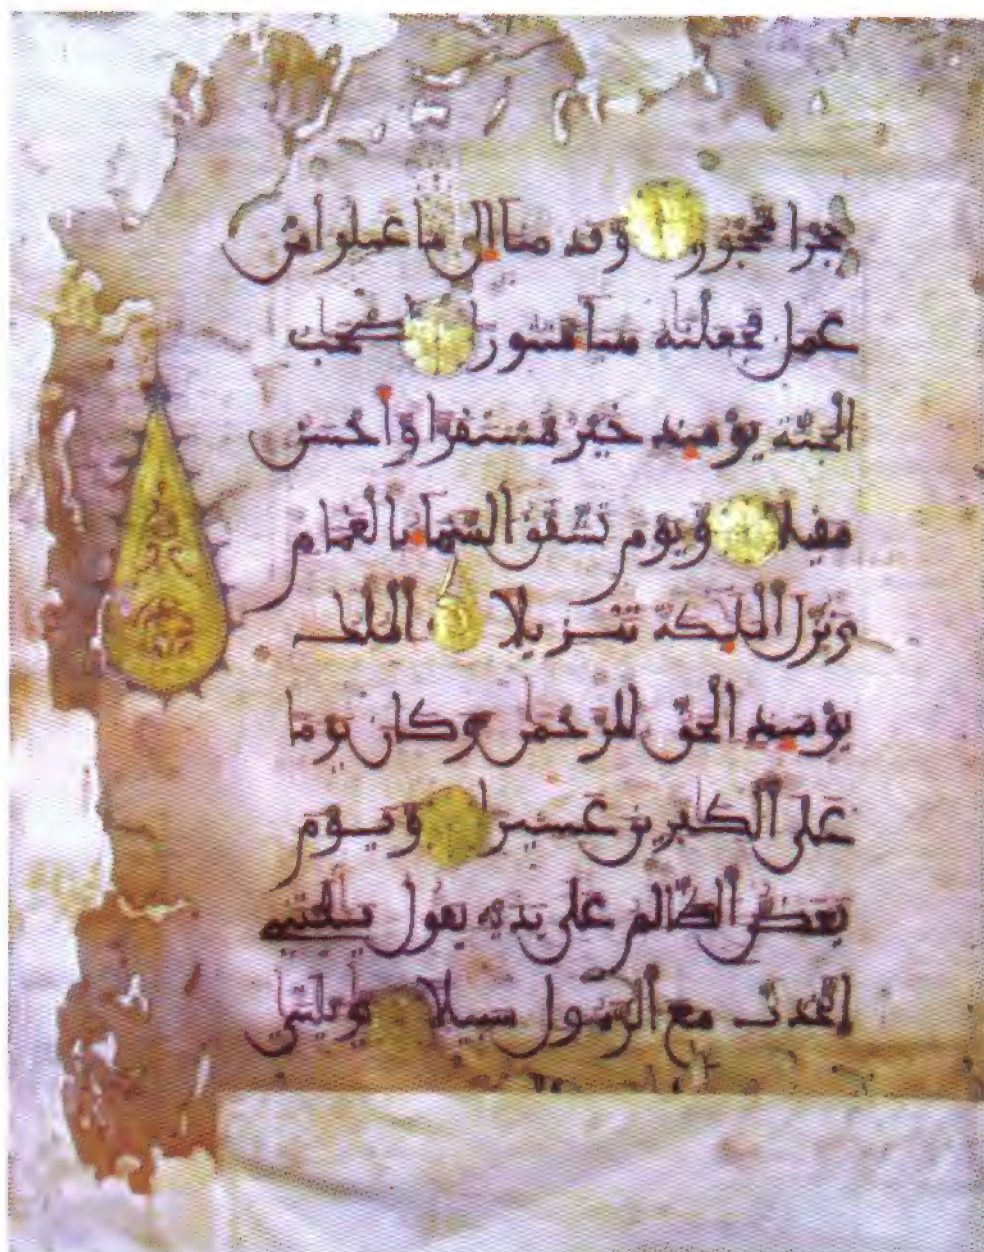 حجرا محجورا وقدمنا إلى ما عملوا من
عمل فجعلنه هبا منثورا أصحب
الجنة يومئذ خير مستقرا وأحسن
مقيلا ويوم تشقق السما بالغمام
ونزل المليكة تنزيلا الملك
يومئذ الحق للرحمن وكان يوما
على الكفرين عسيرا ويوم
يعض الظالم على يديه يقول يليتني
اتخذت مع الرسول سبيلا يويلتي